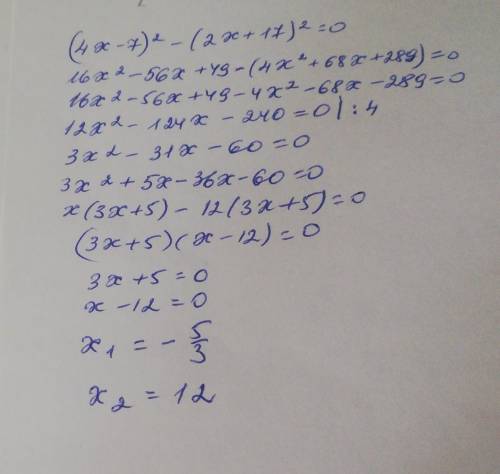 (4x-7)² - (2x+17)² = 0
16x² - 56x + 49 - (4x² + 68x + 289) = 0
16x² - 56x + 49 - 4x² - 68x - 289 = 0
12x² - 124x - 240 = 0 | : 4
3x² - 31x - 60 = 0
3x² + 5x - 36x - 60 = 0
x(3x+5) - 12(3x+5) = 0
(3x+5)(x-12) = 0
3x + 5 = 0
x - 12 = 0
x₁ = - 5/3
x₂ = 12